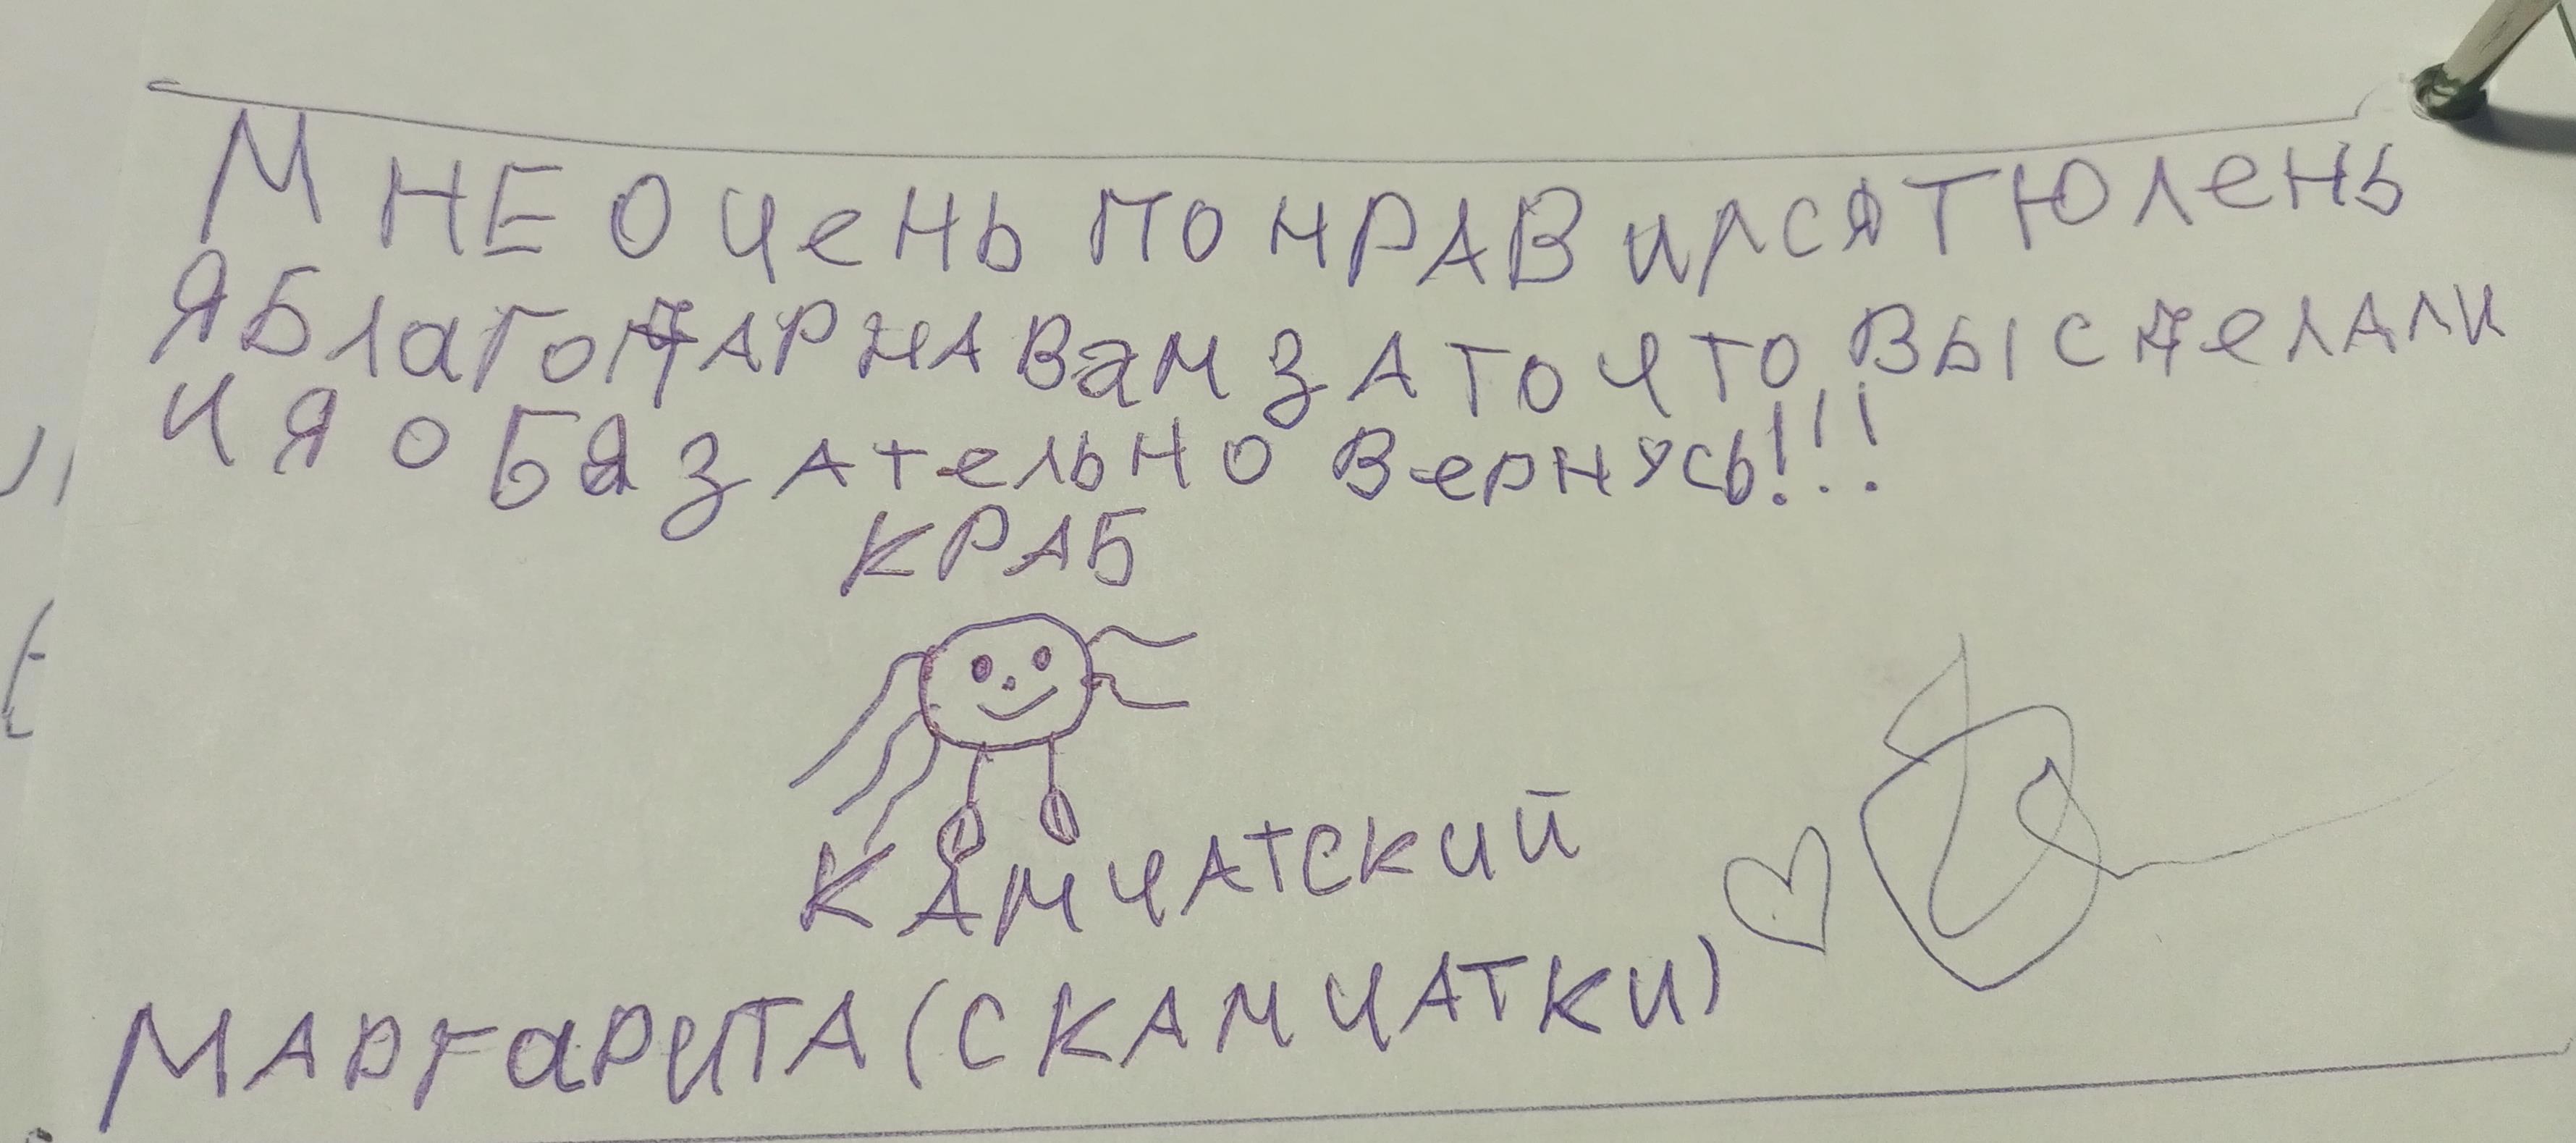 МНЕ ОЧЕНЬ ПОНРАВИЛСЯ ТЮЛЕНЬ
Я БЛАГОДАРНА ВАМ ЗА ТО ЧТО ВЫ СДЕЛАЛИ
И Я ОБЯЗАТЕЛЬНО ВЕРНУСЬ!!!
КРАБ
КАМЧАТСКИЙ
МАРГАРИТА (С КАМЧАТКИ)